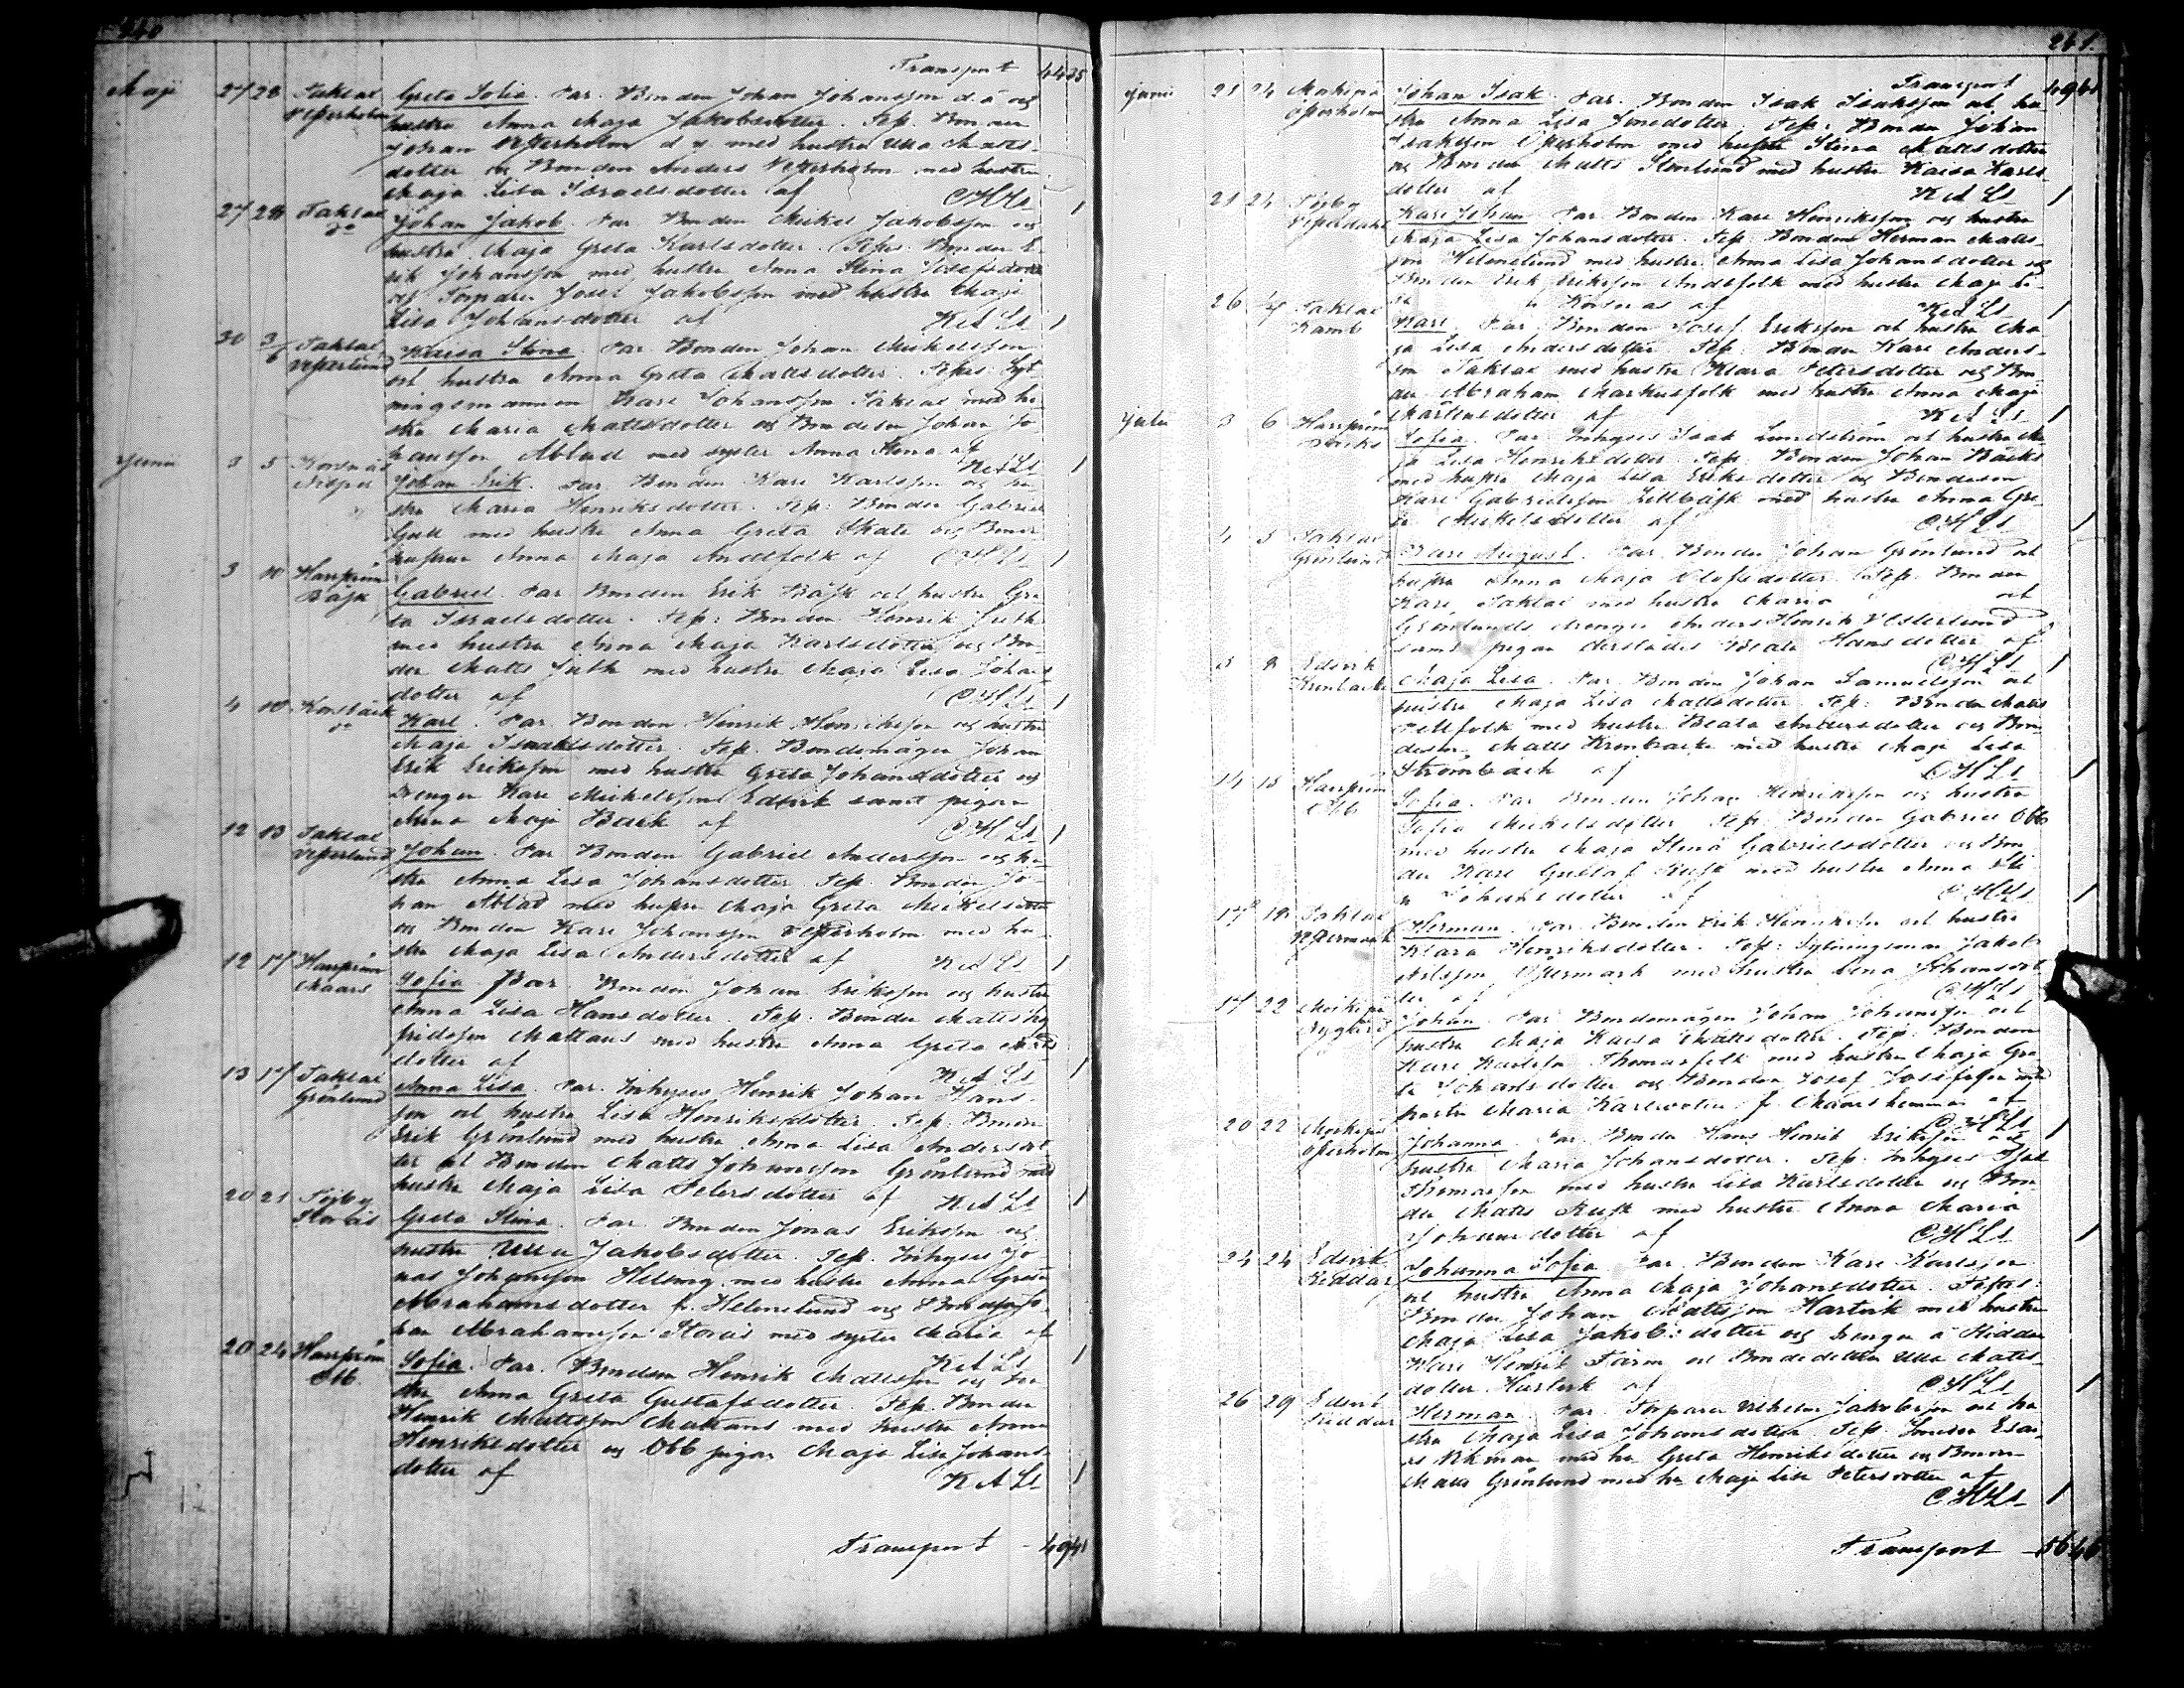 240
Transport 44 35
Maji 27 28 Taklax Greta Sofia. Par. Bonden Johan Johansson d. ä och
Vesterholm hustru Anna Maja Jakobsdotter. Tesp. Bonden
Johan Vesterholm d y med hustru Ulla Matts-
dotter og Bonden Anders Vesterholm med hustru
Maja Lisa Israelsdotter af CHLs 1
27 28 Taklax Johan Jakob. Par. Bonden Mickel Jakobsson og
do hustru Maja Greta Karlsdotter. Tesp. Bonden E-
rik Johansson med hustru Anna Stina Josefsdotter
og Torparen Josef Jakobsson med hustru Maja
Lisa Johansdotter af KALs 1
30 3/6 Taklax Kaisa Stina. Par. Bonden Johan Mickelsson
Vesterlund och hustru Anna Greta Mattsdotter. Tespes. Syt-
ningsmannen Karl Johansson Taklax med hu-
stru Maria Mattsdotter og Bondeson Johan Jo-
hansson Ablad med syster Anna Stina af KALs 1
Junii 3 5 Korsnäs Johan Erik. Par. Bonden Karl Karlsson og hu-
stru Maria Henriksdotter. Tesp: Bonden Gabriel
Gull med hustru Anna Greta Skate og Bonde
hustrun Anna Maja Andtfolk af CHLs 1
3 10 Harrström Gabriel. Par Bonden Erik Båsk och hustru Gre-
Båsk ta Israelsdotter. Tesp: Bonden Henrik Juth
med hustru Anna Maja Karlsdotter og Bon-
den Matts Juth med hustru Maja Lisa Johans-
dotter af CHLs 1
4 10 Korsbäck Karl. Par. Bonden Henrik Henriksson og hustru
do Maja Isaaksdotter. Tesp. Bondemågen Johan
Erik Eriksson med hustru Greta Johansdotter og
Drengen Karl Mickelsson Edsvik samt pigan
Anna Maja Back af CHLs 1
12 13 Taklax Johan. Par Bonden Gabriel Andersson og hu-
Vesterlund stru Anna Lisa Johansdotter. Tesp. Bonden Jo-
han Ablad med hustru Maja Greta Mickelsdotter
og Bonden Karl Johansson Vesterholm med hu-
stru Maja Lisa Andersdotter af KALs 1
12 17 Harrström Sofia Par. Bonden Johan Eriksson og hustru
Maars Anna Lisa Hansdotter. Tesp. Bonden Matts
Mattans med hustru Anna Greta
dotter af KALs 1
13 17 Taklax Anna Lisa. Par. Inhyses Henrik Johan Hans-
Grönlund son och hustru Lisa Henriksdotter. Tesp. Bonden
Erik Grönlund med hustru Anna Lisa Andersdot-
ter och Bonden Matts Johansson Grönlund med
hustru Maja Lisa Petersdotter af KALs 1
20 21 Töjby Greta Stina. Par. Bonden Jonas Eriksson og
Storås hustru Ulla Jakobsdotter. Tesp. Inhyses Jo-
nas Johansson Helsing med hustru Anna Greta
Abrahamsdotter fr. Helenelund og Bondeson Jo-
han Abrahamsson Storås med syster Maria af KALs 1
20 24 Harrström Sofia. Par. Bonden Henrik Mattsson og hu-
Obb stru Anna Greta Gustafsdotter. Tesp. Bonden
Henrik Mattsson Mattans med hustru Anna
Henriksdotter og Obb pigan Maja Lisa Johans-
dotter af KALs 1
Transport - 49 41
241.
Transport 49 41
Junii 21 24 Molpe Johan Isak. Par. Bonden Isak Isaksson och hu-
Österholm stru Anna Lisa Jonedotter. Tesp: Bonden Johan
Isaksson Österholm med hustru Stina Mattsdotter
og Bonden Matts Stenlund med hustru Kaisa Karls-
dotter af KALs 1
21 24 Töjby Karl Johan. Par. Bonden Karl Henriksson og hustru
Vesterdahl Maja Lisa Johansdotter. Tesp: Bonden Herman Matts-
son Helenelund med hustru Anna Lisa Johansdotter og
Bonden Erik Eriksson Andtfolk med hustru Maja Li-
sa Korsnäs af KALs 1
26 Taklax Karl. Par Bonden Josef Eriksson och hustru Ma-
Kamb ja Lisa Andersdotter. Tesp. Bonden Karl Anders-
son Taklax med hustru Klara Petersdotter og Bon-
den Abraham Markusfolk med hustru Anna Maja
Mårtensdotter af KALs 1
Julii 3 6 Harrström Sofia. Par Inhyses Isak Lundström och hustru Ma-
ja Lisa Henriksdotter. Tesp. Bonden Johan Bäcks
med hustru Maja Lisa Eriksdotter og Bondeson
Karl Gabrielsson Lillbåsk med hustru Anna Gre-
ta Mickelsdotter af CHLs 1
4 5 Taklax Karl August. Par. Bonden Johan Grönlund och
Grönlund hustru Anna Maja Olofsdotter. Tesp. Bonden
Karl Taklax med hustru Maria och
Grönlunds drengen Anders Henrik Vesterlund
samt pigan derstädes Beata Hansdotter af CHLs 1
5 8 Edsvik Maja Lisa. Par. Bonden Johan Samuelsson och
Kronbacke hustru Maja Lisa Mattsdotter. Tesp: Bonden Matts
Pellfolk med hustru Beata Andersdotter og Bon-
deson Matts Kronbacke med hustru Maja Lisa
Strömbäck af CHLs 1
14 15 Harrström Sofia. Par Bonden Johan Henriksson og hustru
Obb Sofia Mickelsdotter Tesp. Bonden Gabriel Obb
med hustru Maja Stina Gabrielsdotter og Bon-
den Karl Gustaf Rusk med hustru Anna Sti-
na Johansdotter af CHLs 1
17 18 Taklax Herman. Par. Bonden Erik Henriksson och hustru
Vestermark Klara Henriksdotter. Tesp: Sytningsman Jakob
Vestermark med hustru Lena Johansdot-
ter af CHLs
17 22 Johan. Par. Bondemågen Johan Johansson och
Nygård hustru Maja Kaisa Mattsdotter. Tesp. Bonden
Karl Karlsson Thomasfolk med hustru Maja Gre-
ta Johansdotter og Bonden Josef Josefsson med
hustru Maria Karlsdotter fr. Maars hemman af CHLs 1
20 22 Johanna. Par. Bonden Hans Henrik Eriksson och
Österholm hustru Maria Johansdotter. Tesp. Inhyses
Thomasson med hustru Lisa Karlsdotter og Bon-
den Matts Rusk med hustru Anna Maria
Johansdotter af CHLs 1
24 24 Edsvik Johanna Sofia. Par. Bonden Karl Karlsson
Riddar och hustru Anna Maja Johansdotter. Tespes:
Bonden Johan Mattsson Hartvik med hustru
Maja Lisa Jakobsdotter og Drengen å Riddar
Karl Henrik och Bondedottern Ulla Matts-
dotter Hartvik af CHLs 1
26 29 Edsvik Herman. Par. Torparen Vilhelm Jakobsson och hu-
Riddar stru Maja Lisa Johansdotter. Tesp. Smeden Esai-
as Åkman med hu Greta Henriksdotter og Bonden
Matts Grönlund med hu Maja Lisa Petersdotter af
CHLs 1
Transport - 56 46